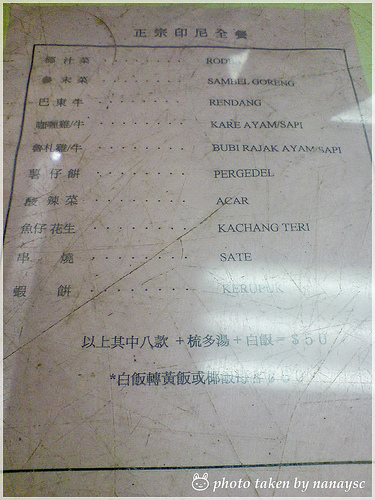 正宗印尼全餐
椰汁菜 · · · · · · · · ·
參末菜 · · · · · · · · · SAMBEL GORENG
巴東牛 · · · · · · · · · RENDANG
咖喱雞/牛 · · · · · · · · · KARE AYAM/SAPI
雞/牛 · · · · · · · · · BUBI RAJAK AYAM/SAPI
薯仔餅 · · · · · · · · · PERGEDEL
酸辣菜 · · · · · · · · · ACAR
魚仔花生 · · · · · · · · · KACHANG TERI
串燒 · · · · · · · · · SATE
蝦餅 · · · · · · · · · KERUPUK
以上其中八款 + 梳多湯 + 白飯 = $50
*白飯轉黃飯或椰飯
photo taken by nanaysc